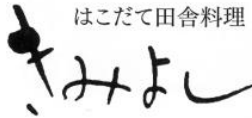 はこだて田舎料理
きみよし